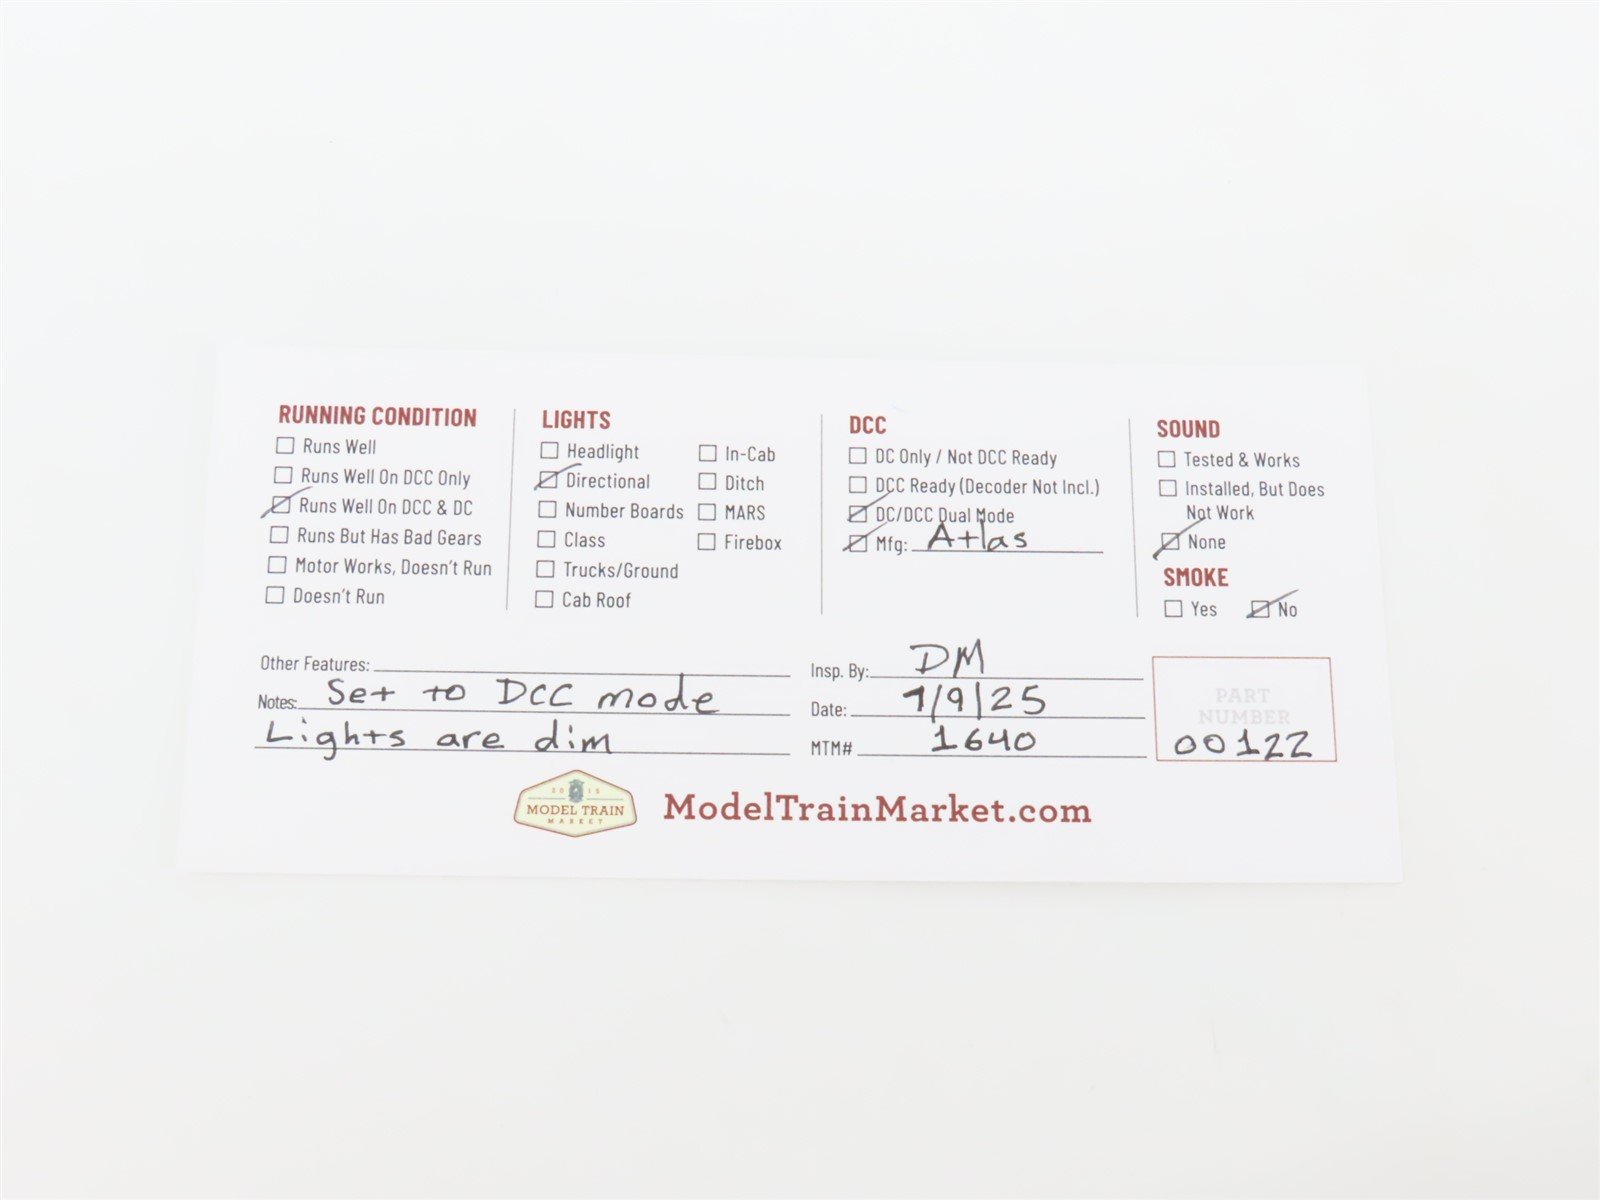 RUNNING CONDITION
Runs Well
Runs Well On DCC Only
Runs Well On DCC & DC
Runs But Has Bad Gears
Motor Works, Doesn't Run
Doesn't Run
LIGHTS
Headlight
Directional
Number Boards
Class
Trucks/Ground
Cab Roof
In-Cab
Ditch
MARS
Firebox
DCC
DC Only / Not DCC Ready
DCC Ready (Decoder Not Incl.)
DC/DCC Dual Mode
Mfg: Atlas
SOUND
Tested & Works
Installed, But Does
Not Work
None
SMOKE
Yes No
Other Features:
Notes: Set to DCC mode
Lights are dim
Insp. By: DM
Date: 7/9/25
MTM# 1640
PART
NUMBER
00122
2015
MODEL TRAIN
MARKET
ModelTrainMarket.com